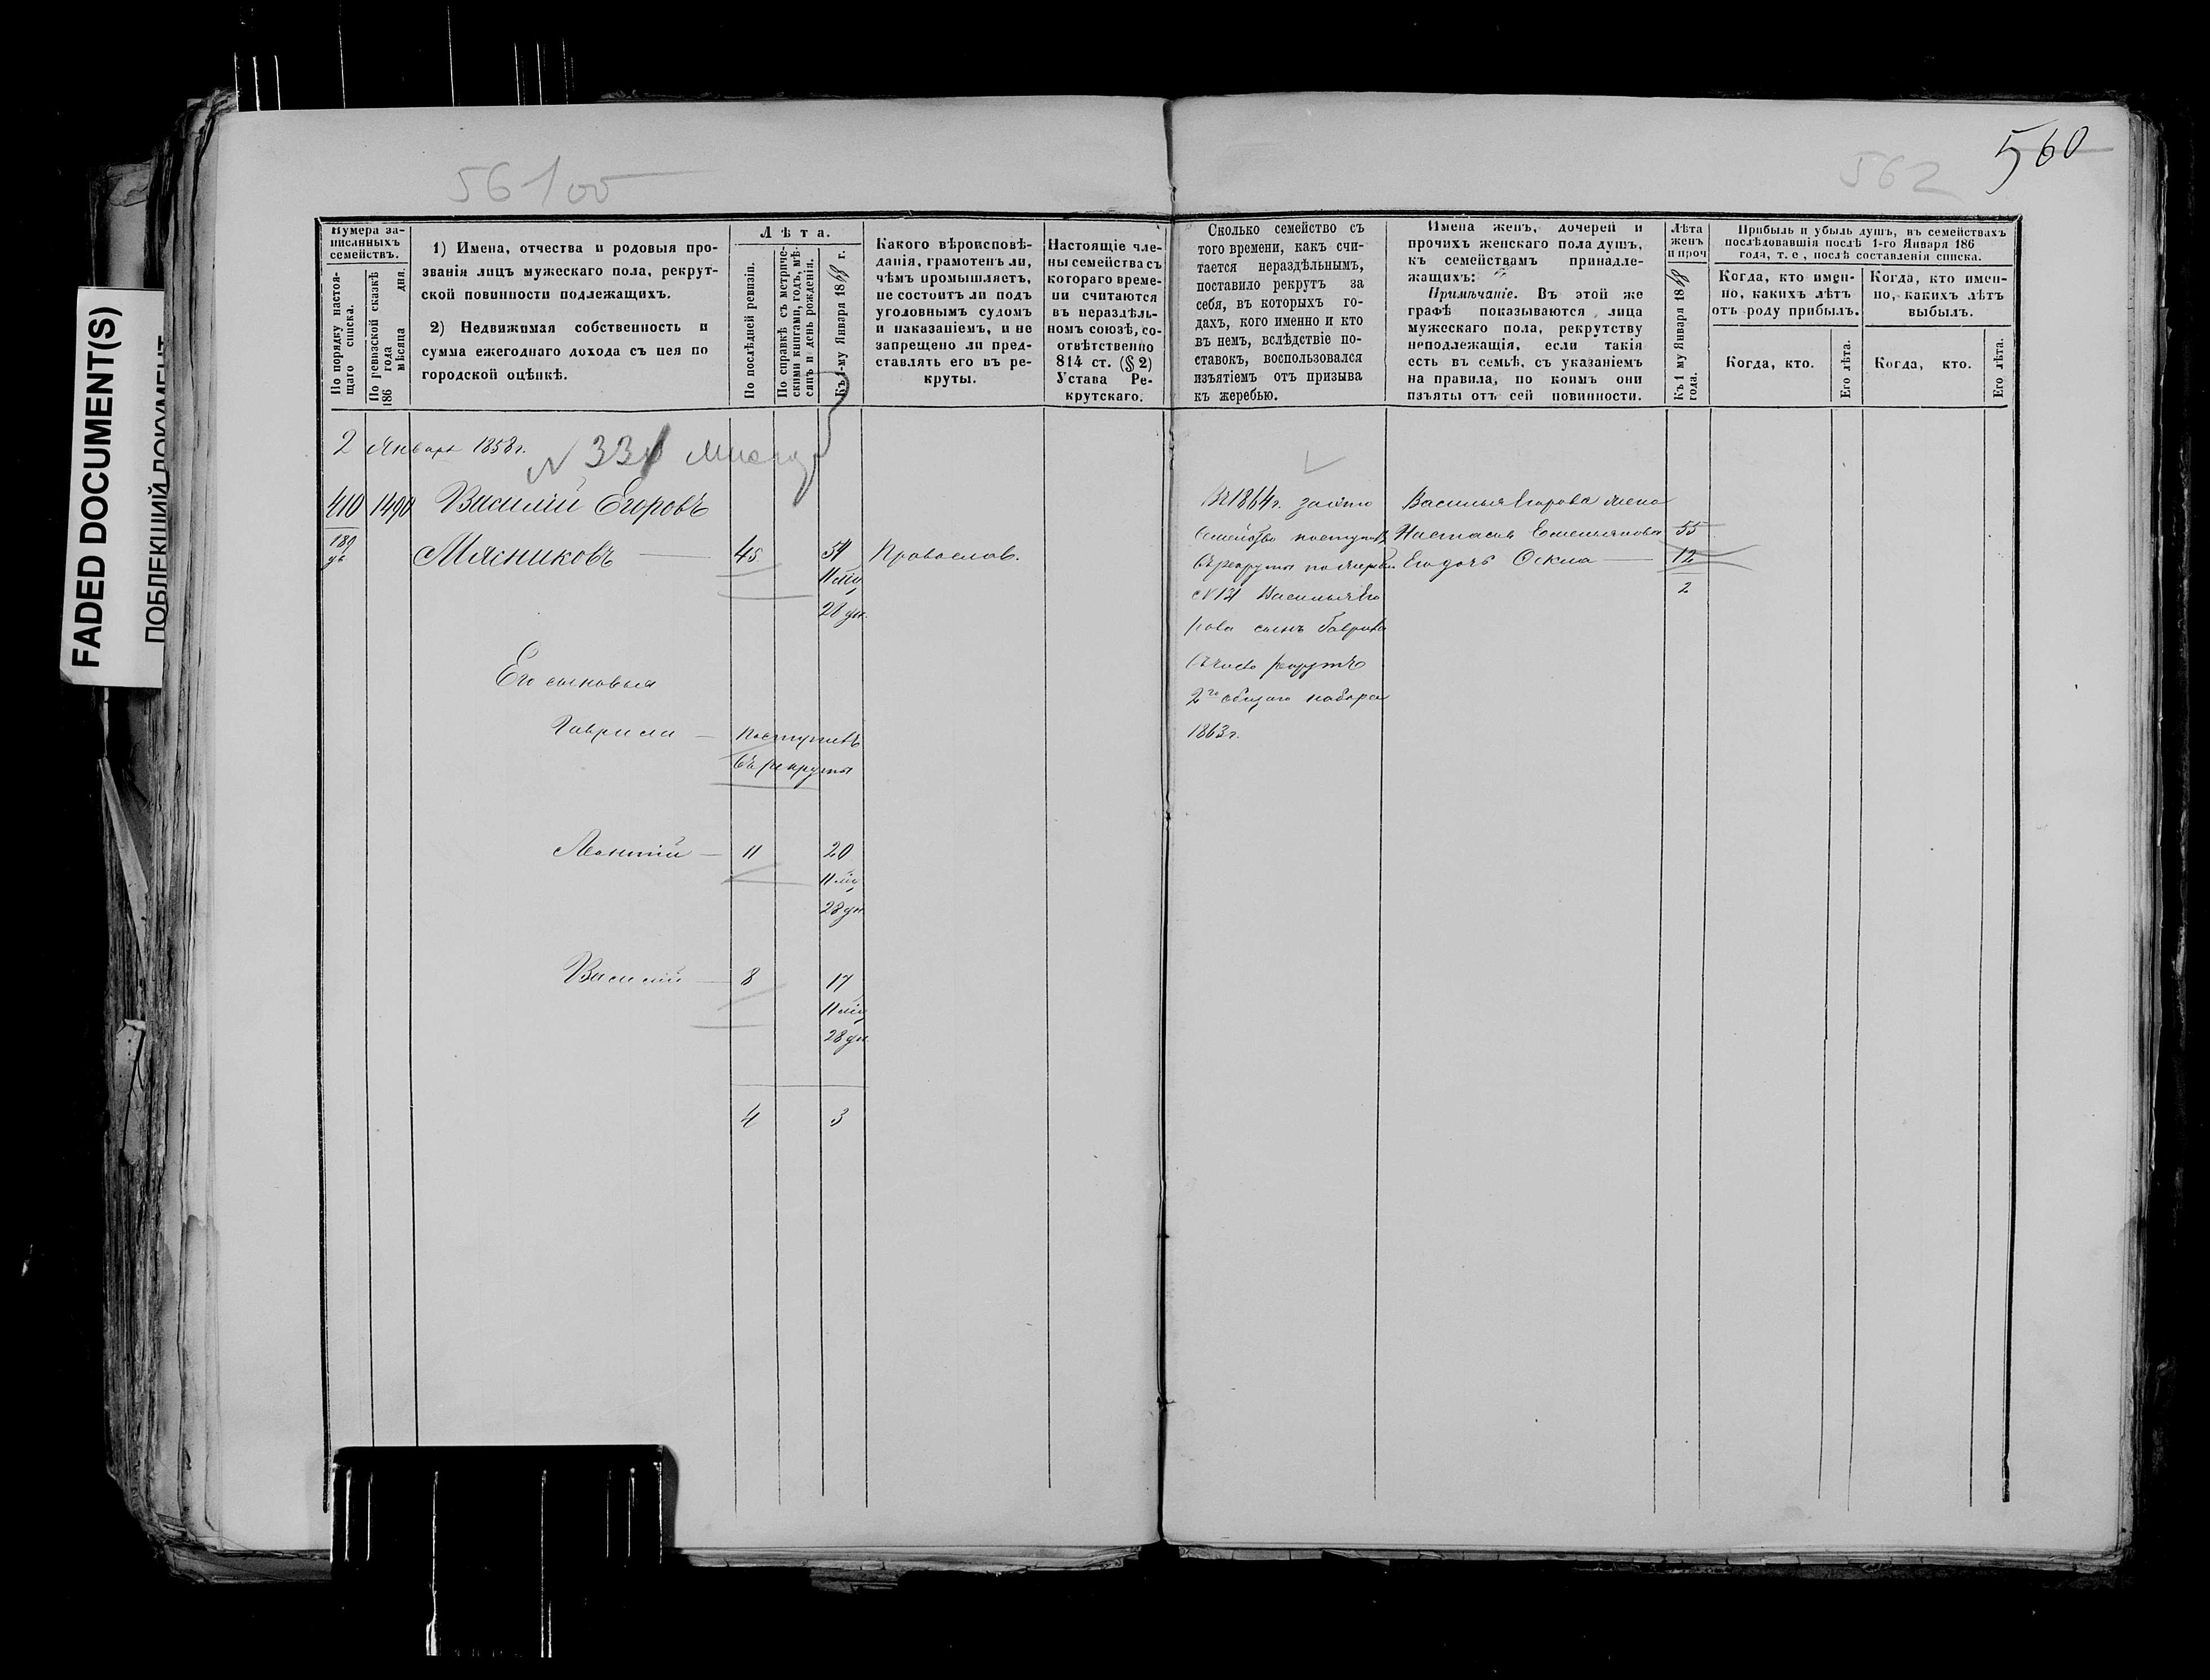 FADED DOCUMENT(S)
560
562
Нумера за-
писанныхъ
семействъ.
По порядку настоя-
щаго списка.
По ревизской сказкѣ
186 года мѣсяца дня.
1) Имена, отчества и родовыя про-
званія лицъ мужескаго пола, рекрут-
ской повинности подлежащихъ.
2) Недвижимая собственность и
сумма ежегоднаго дохода съ нея по
городской оцѣнкѣ.
Лѣта.
По послѣдней ревизіи.
По справкѣ съ метриче-
скими книгами, годъ, мѣ-
сяцъ и день рожденія.
Къ 1-му Января 1868 г.
Какого вѣроисповѣ-
данія, грамотенъ ли,
чѣмъ промышляетъ,
не состоитъ ли подъ
уголовнымъ судомъ
и наказаніемъ, и не
запрещено ли пред-
ставлять его въ ре-
круты.
Настоящіе чле-
ны семейства съ
котораго време-
ни считаются
въ нераздѣль-
номъ союзѣ, со-
отвѣтственно
814 ст. (§ 2)
Устава Ре-
крутскаго.
Сколько семейство съ
того времени, какъ счи-
тается нераздѣльнымъ,
поставило рекрутъ за
себя, въ которыхъ го-
дахъ, кого именно и кто
въ немъ, вслѣдствіе по-
ставокъ, воспользовался
изъятіемъ отъ призыва
къ жеребью.
Имена женъ, дочерей и
прочихъ женскаго пола душъ,
къ семействамъ принадле-
жащихъ:
Примѣчаніе. Въ этой же
графѣ показываются лица
мужескаго пола, рекрутству
неподлежащія, если такія
есть въ семьѣ, съ указаніемъ
на правила, по коимъ они
изъяты отъ сей повинности.
Лѣта
женъ
и проч
Къ 1 му Января 1868
года.
Прибыль и убыль душъ, въ семействахъ
послѣдовавшія послѣ 1-го Января 186
года, т. е, послѣ составленія списка.
Когда, кто имен-
но, какихъ лѣтъ
отъ роду прибылъ.
Когда, кто имен-
но, какихъ лѣтъ
выбылъ.
Когда, кто.
Его лѣта.
Когда, кто.
Его лѣта.
2 Января 1858г.
N 331
410 1490 Василій Егоровъ
189
Мясниковъ 45 54 Православ.
11 мѣс
28 дн.
Его сыновья
Гаврила поступилъ
въ рекруты
Леонтій 11 20
11 мѣс
28 дн
Василій 8 17
11 мѣс
28 дн
4 3
Въ 1864г. за это
Семейство поступилъ
въ рекруты по жереб.
N 131 Василья Его
рова сынъ Гаврила
въ число рекрутъ
2го общаго набора
1863г.
Василья Егорова жена
Настасья Емельянова 55
Его дочь Оекла 12
2